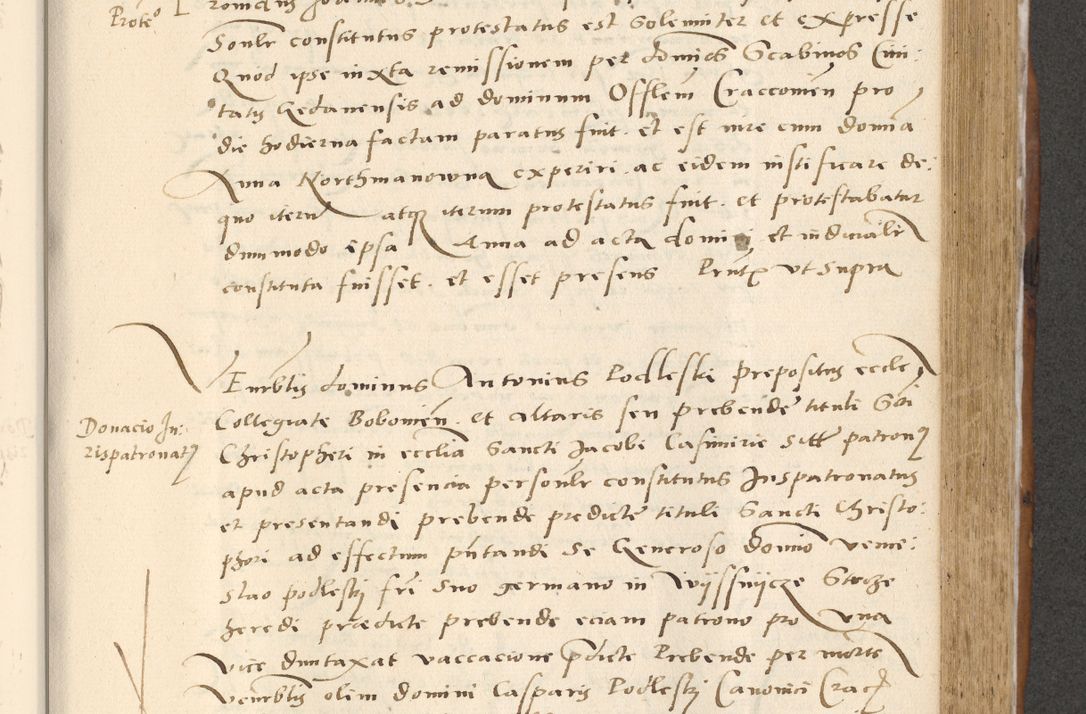 Prote⁰
Sonlr constitutus protestatus est Solenniter et expresse
Quod ipse iuxta remissionem per dominos Scabinos Ciui:
tatis Gedanensis ad dominum Offlem Craccouien pro
die hodierna factam paratus fuit et est iure cum domina
Anna Northmanowna experiri ac eidem iustificare de:
quo iterum atque iterum protestatus fuit et protestabatur
dummodo ipsa Anna ad acta domini et iudicialr
constituta fuisset et esset presens Prntz vt Supra
Venrblis dominus Antonius Podleski prepositus eccle
Collegiate Bobouien et altaris seu prebende tituli Sti
Donacio Iu:
rispatronatus
Christopheri in ecclia Sancti Jacobi Casimirie sitt patronus
apud acta presencia personlr constitutus Juspatronatus
et presentandi prebende predicte tituli Sancti Christo:
phori ad effectum pntandi se Generoso domino vence:
slao podleskj fri suo germano in Wijssnijcze
heredi prædicte prebende eciam patrono pro vna
vice duntaxat vaccacione pdicte Prebende per morte
venrblis olim domini Casparis Podleskj Canonici Crac